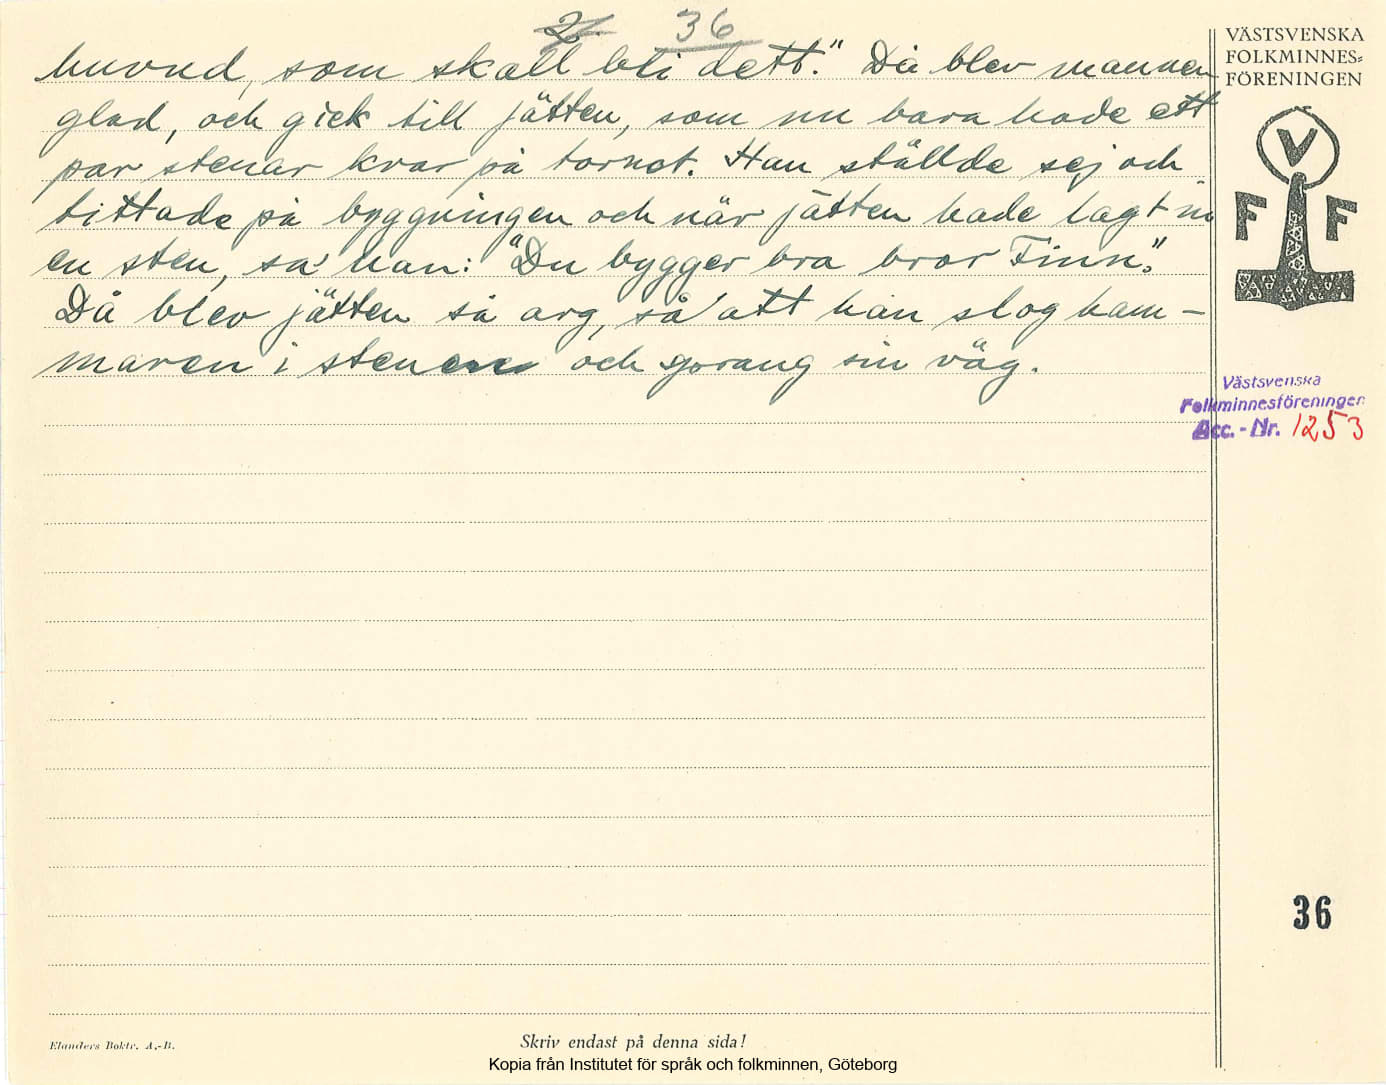 2. 36
huvud, som skall bli ditt." Då blev mannen
glad, och gick till jätten, som nu bara hade ett
par stenar kvar på tornet. Han ställde sej och
tittade på byggningen och när jätten hade lagt in
en sten, sa' han: "Du bygger bra bror Finn."
Då blev jätten så arg, så' att han slog ham-
maren i stenen och sprang sin väg.
VÄSTSVENSKA
FOLKMINNES-
FÖRENINGEN
V
F F
Västsvenska
Folkminnesföreningen
Acc.-Nr. 1253
36
Elanders Boktr. A.-B.
Skriv endast på denna sida!
Kopia från Institutet för språk och folkminnen, Göteborg